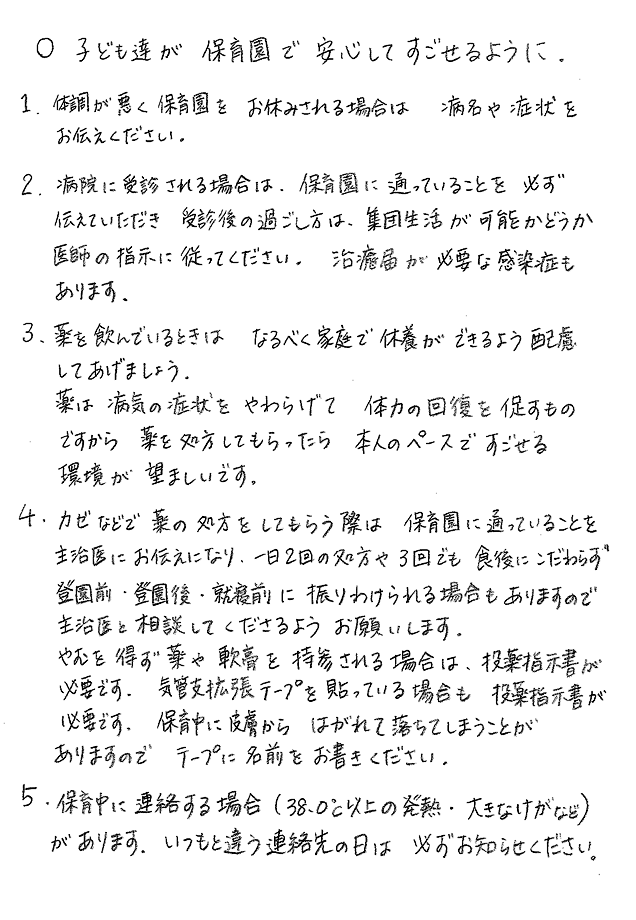 ○ 子ども達が 保育園で 安心して すごせるように.
1. 体調が悪く保育園を お休みされる場合は 病名や症状を
お伝えください.
2. 病院に受診される場合は、保育園に通っていることを 必ず
伝えていただき 受診後の過ごし方は、集団生活が可能かどうか
医師の指示に従ってください. 治癒届が必要な感染症も
あります.
3、薬を飲んでいるときは なるべく家庭で休養ができるよう配慮
してあげましょう.
薬は 病気の症状を やわらげて 体力の回復を促すもの
ですから 薬を処方してもらったら 本人のペースですごせる
環境が 望ましいです。
4. カゼなどで薬の処方をしてもらう際は 保育園に通っていることを
主治医にお伝えになり、一日2回の処方や3回でも 食後にこだわらず
登園前・登園後・就寝前に 振りわけられる場合もありますので
主治医と相談してくださるよう お願いします.
やむを得ず薬や軟膏を持参される場合は、投薬指示書が
必要です. 気管支拡張テープを貼っている場合も 投薬指示書が
必要です. 保育中に皮膚から はがれて落ちてしまうことが
ありますので テープに名前をお書きください.
5. 保育中に連絡する場合(38.0℃以上の発熱・大きなけがなど)
があります. いつもと違う連絡先の日は 必ずお知らせください。